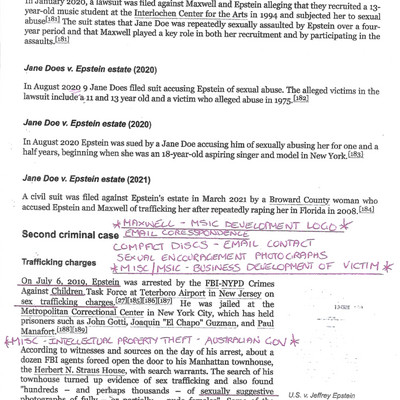 In January 2020, a lawsuit was filed against Maxwell and Epstein alleging that they recruited a 13-
year-old music student at the Interlochen Center for the Arts in 1994 and subjected her to sexual
abuse[181] The suit states that Jane Doe was repeatedly sexually assaulted by Epstein over a four-
year period and that Maxwell played a key role in both her recruitment and by participating in the
assaults.[181]
Jane Does v. Epstein estate (2020)
In August 2020 9 Jane Does filed suit accusing Epstein of sexual abuse. The alleged victims in the
lawsuit include a 11 and 13 year old and a victim who alleged abuse in 1975.[182]
Jane Doe v. Epstein estate (2020)
In August 2020 Epstein was sued by a Jane Doe accusing him of sexually abusing her for one and a
half years, beginning when she was an 18-year-old aspiring singer and model in New York.[183]
Jane Doe v. Epstein estate (2021)
A civil suit was filed against Epstein's estate in March 2021 by a Broward County woman who
accused Epstein and Maxwell of trafficking her after repeatedly raping her in Florida in 2008.[184]
*MAXWELL - MSIC DEVELOPMENT LOGO *
Second criminal case EMAIL CORESPONDENCE
COMPACT DISCS - EMAIL CONTACT
SEXUAL ENCOURAGEMENT PHOTOGRAPHS
Trafficking charges *MISC/MSIC - BUSINESS DEVELOPMENT OF VICTIM *
On July 6, 2019, Epstein was arrested by the FBI-NYPD Crimes
Against Children Task Force at Teterboro Airport in New Jersey on
sex trafficking charges.[27][185][186][187] He was jailed at the
Metropolitan Correctional Center in New York City, which has held
prisoners such as John Gotti, Joaquin "El Chapo" Guzman, and Paul
Manafort.[188][189]
*MISC - INTELLECTUAL PROPERTY THEFT - AUSTRALIAN GOV *
According to witnesses and sources on the day of his arrest, about a
dozen FBI agents forced open the door to his Manhattan townhouse,
the Herbert N. Straus House, with search warrants. The search of his
townhouse turned up evidence of sex trafficking and also found
"hundreds – and perhaps thousands – of sexually suggestive
U.S. v Jeffrey Epstein